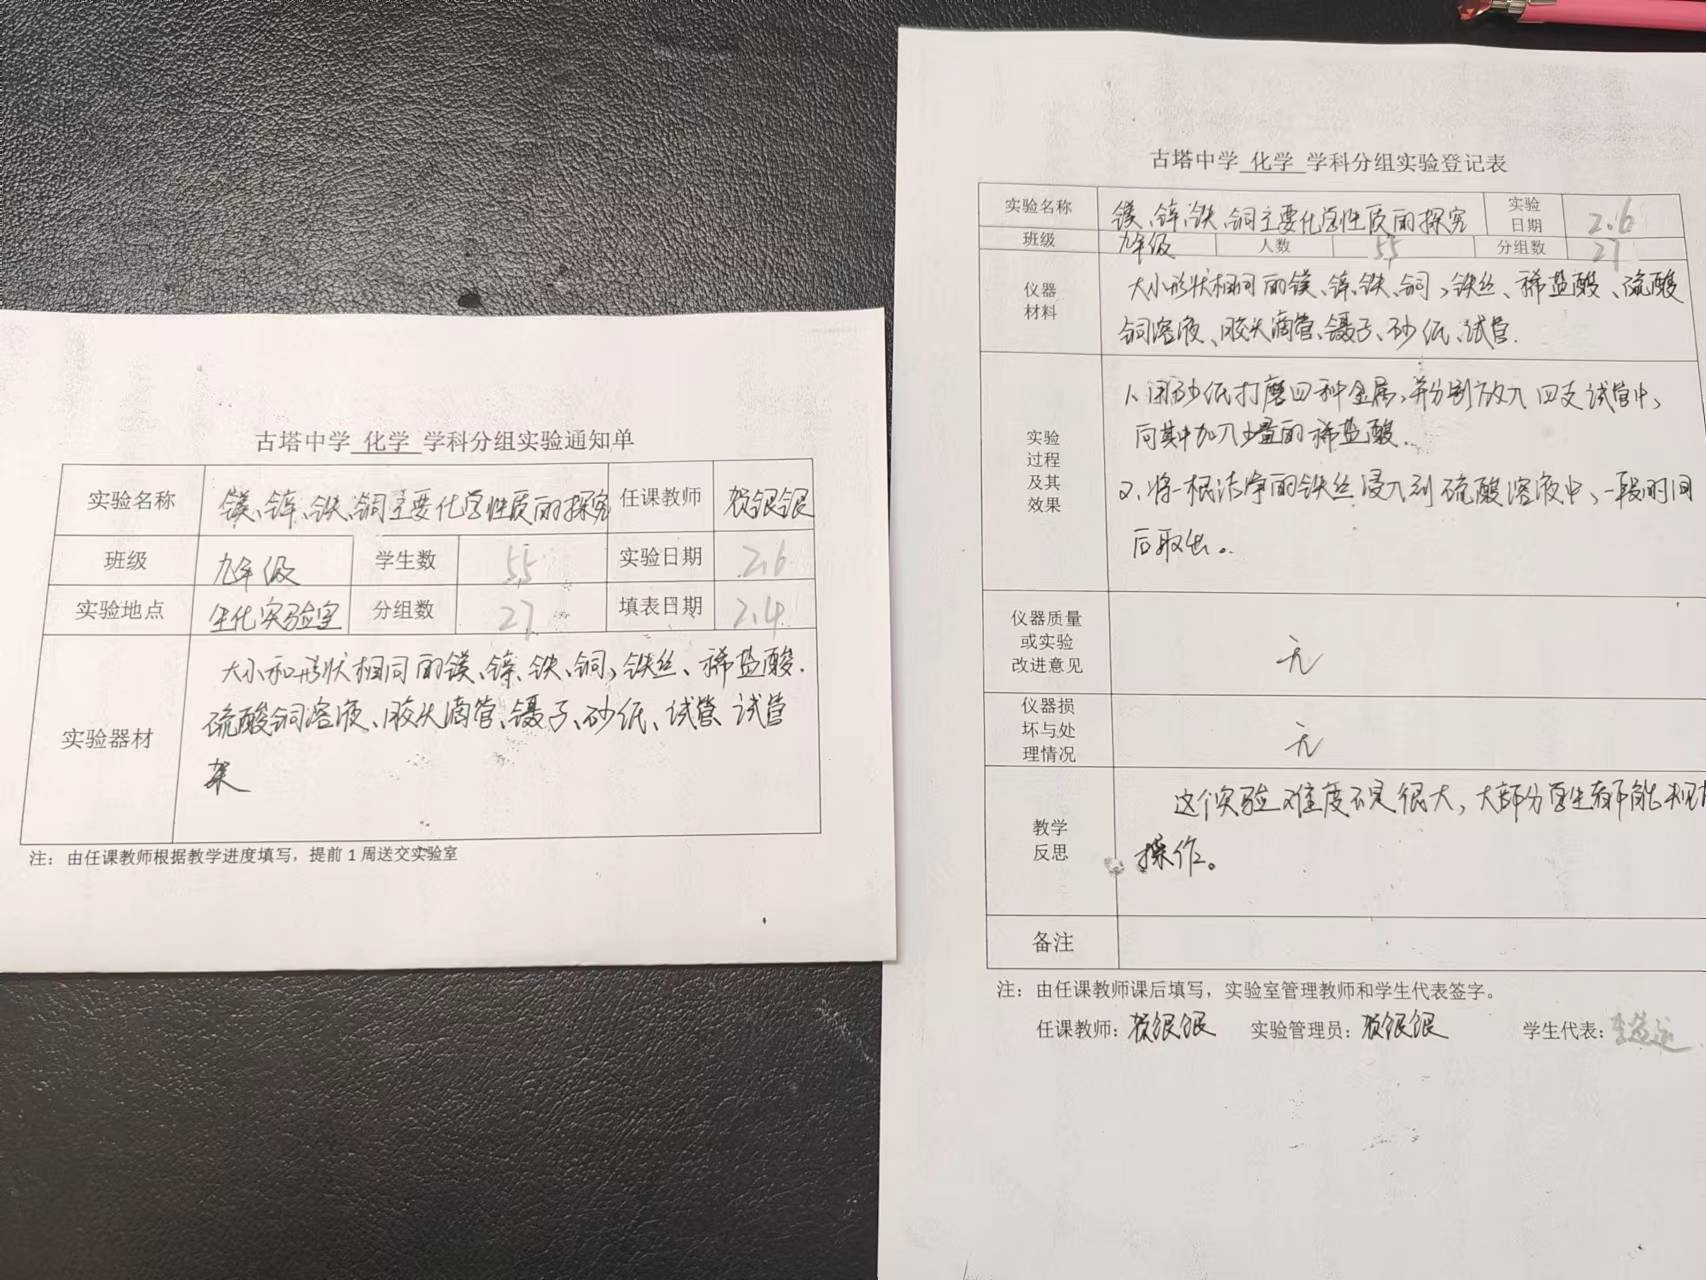 古塔中学 化学 学科分组实验通知单
实验名称 镁、锌、铁、铜主要化学性质的探究 任课教师 贺银银
班级 九年级 学生数 55 实验日期 2.6
实验地点 生化实验室 分组数 27 填表日期 2.4
实验器材
大小和形状相同的镁、锌、铁、铜、铁丝、稀盐酸.
硫酸铜溶液、胶头滴管、镊子、砂纸、试管 试管
架
注：由任课教师根据教学进度填写，提前1周送交实验室
古塔中学 化学 学科分组实验登记表
实验名称 镁、锌、铁、铜主要化学性质的探究 实验日期 2.6
班级 九年级 人数 55 分组数 27
仪器
材料
大小形状相同的镁、锌、铁、铜、铁丝、稀盐酸、硫酸
铜溶液、胶头滴管、镊子、砂纸、试管.
实验
过程
及其
效果
1、用砂纸打磨四种金属，并分别放入四支试管中，
向其中加入少量的稀盐酸.
2、将一根洁净的铁丝浸入到硫酸溶液中、一段时间
后取出。
仪器质量
或实验
改进意见
无
仪器损
坏与处
理情况
无
教学
反思
这个实验难度不是很大，大部分学生都能
操作。
备注
注：由任课教师课后填写，实验室管理教师和学生代表签字。
任课教师：贺银银 实验管理员：贺银银 学生代表：